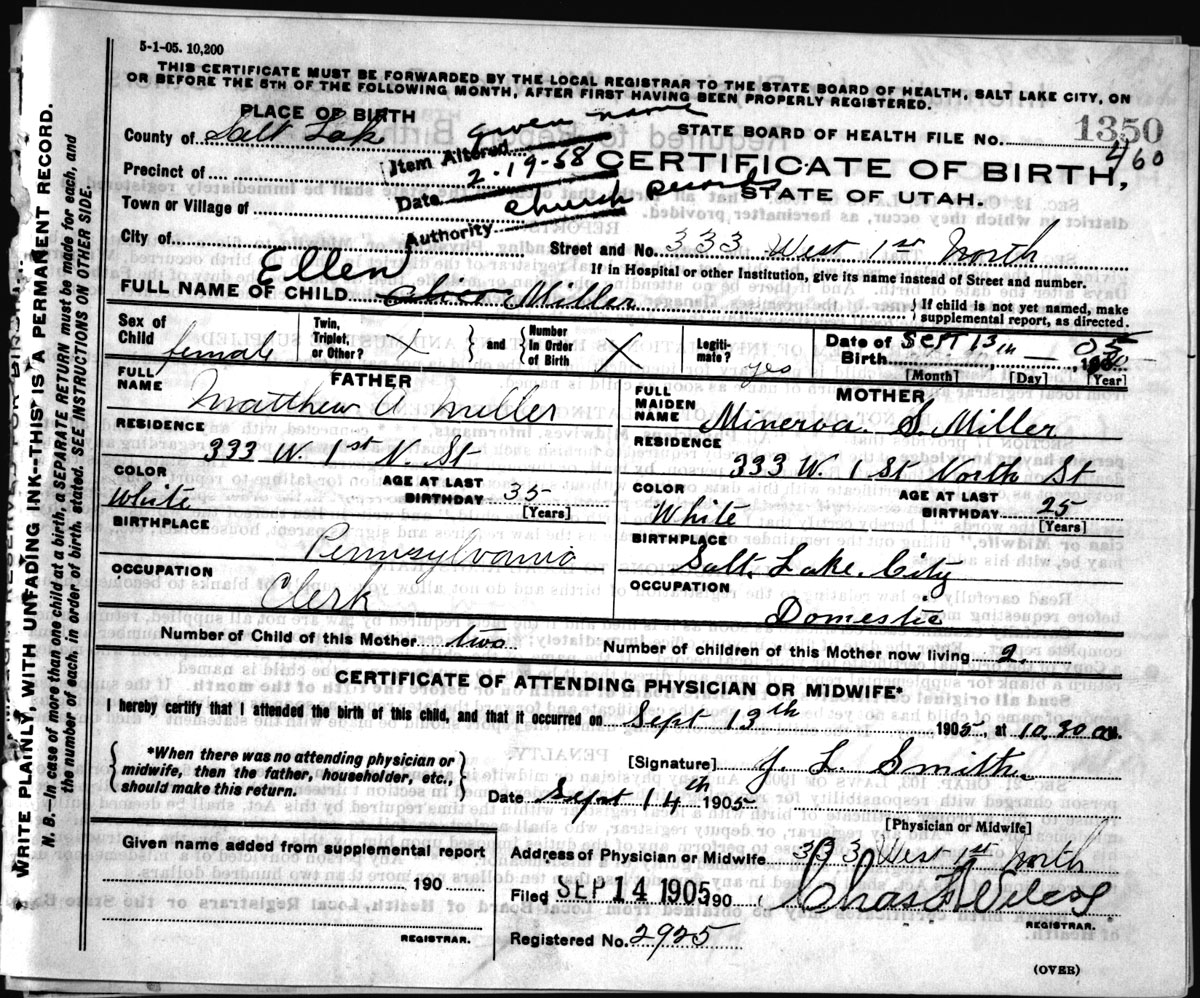 5-1-05. 10,200
THIS CERTIFICATE MUST BE FORWARDED BY THE LOCAL REGISTRAR TO THE STATE BOARD OF HEALTH, SALT LAKE CITY, ON
OR BEFORE THE 5TH OF THE FOLLOWING MONTH, AFTER FIRST HAVING BEEN PROPERLY REGISTERED.
PLACE OF BIRTH
County of Salt Lake
[Item Altered given name
STATE BOARD OF HEALTH FILE No. 1350
460
Precinct of
Date 2-19-58
CERTIFICATE OF BIRTH,
STATE OF UTAH.
Town or Village of
Authority church record
City of
Street and No. 333 West 1st North
If in Hospital or other Institution, give its name instead of Street and number.
Ellen
FULL NAME OF CHILD Miller
{If child is not yet named, make supplemental report, as directed.
Sex of Child female
Twin, Triplet, or Other?
and
Number In Order of Birth
Legitimate? yes
Date of Birth SEPT 13th 05 190
[Month] [Day] [Year]
FATHER
FULL NAME Matthew A Miller
RESIDENCE 333 W. 1st N. St
COLOR White
AGE AT LAST BIRTHDAY 35
[Years]
BIRTHPLACE Pennsylvania
OCCUPATION Clerk
MOTHER
FULL MAIDEN NAME Minerva S. Miller
RESIDENCE 333 W. 1 St North St
COLOR White
AGE AT LAST BIRTHDAY 25
[Years]
BIRTHPLACE Salt Lake City
OCCUPATION Domestic
Number of Child of this Mother two
Number of children of this Mother now living 2
CERTIFICATE OF ATTENDING PHYSICIAN OR MIDWIFE*
I hereby certify that I attended the birth of this child, and that it occurred on Sept 13th 1905, at 10.30 a M.
{*When there was no attending physician or
midwife, then the father, householder, etc.,
should make this return.}
[Signature] Y L Smith
Date Sept 14th 1905
[Physician or Midwife]
Given name added from supplemental report
190
REGISTRAR.
Address of Physician or Midwife 333 West 1st North
Filed SEP 14 1905 190
Chas F Wilcox
REGISTRAR.
Registered No. 2925
(OVER)
WRITE PLAINLY WITH UNFADING INK--THIS IS A PERMANENT RECORD.
N. B.--In case of more than one child at a birth, a SEPARATE RETURN must be made for each, and
the number of each, in order of birth, stated. SEE INSTRUCTIONS ON OTHER SIDE.